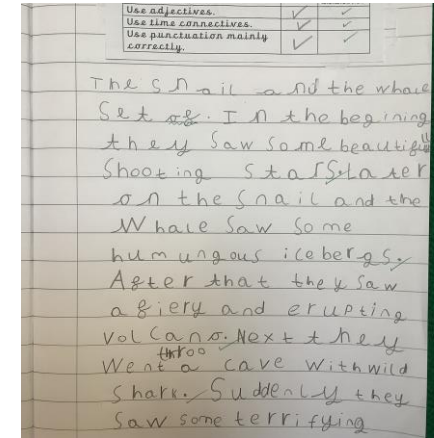 Use adjectives.
Use time connectives.
Use punctuation mainly
correctly.
The snail and the whale
Set of. In the begining
they Saw Some beautiful
Shooting Stars. Later
on the Snail and the
Whale Saw Some
humungous icebergs.
After that they Saw
a fiery and erupting
volcano. Next they
throo
Went a cave with wild
Shark. Suddenly they
Saw Some terrifying